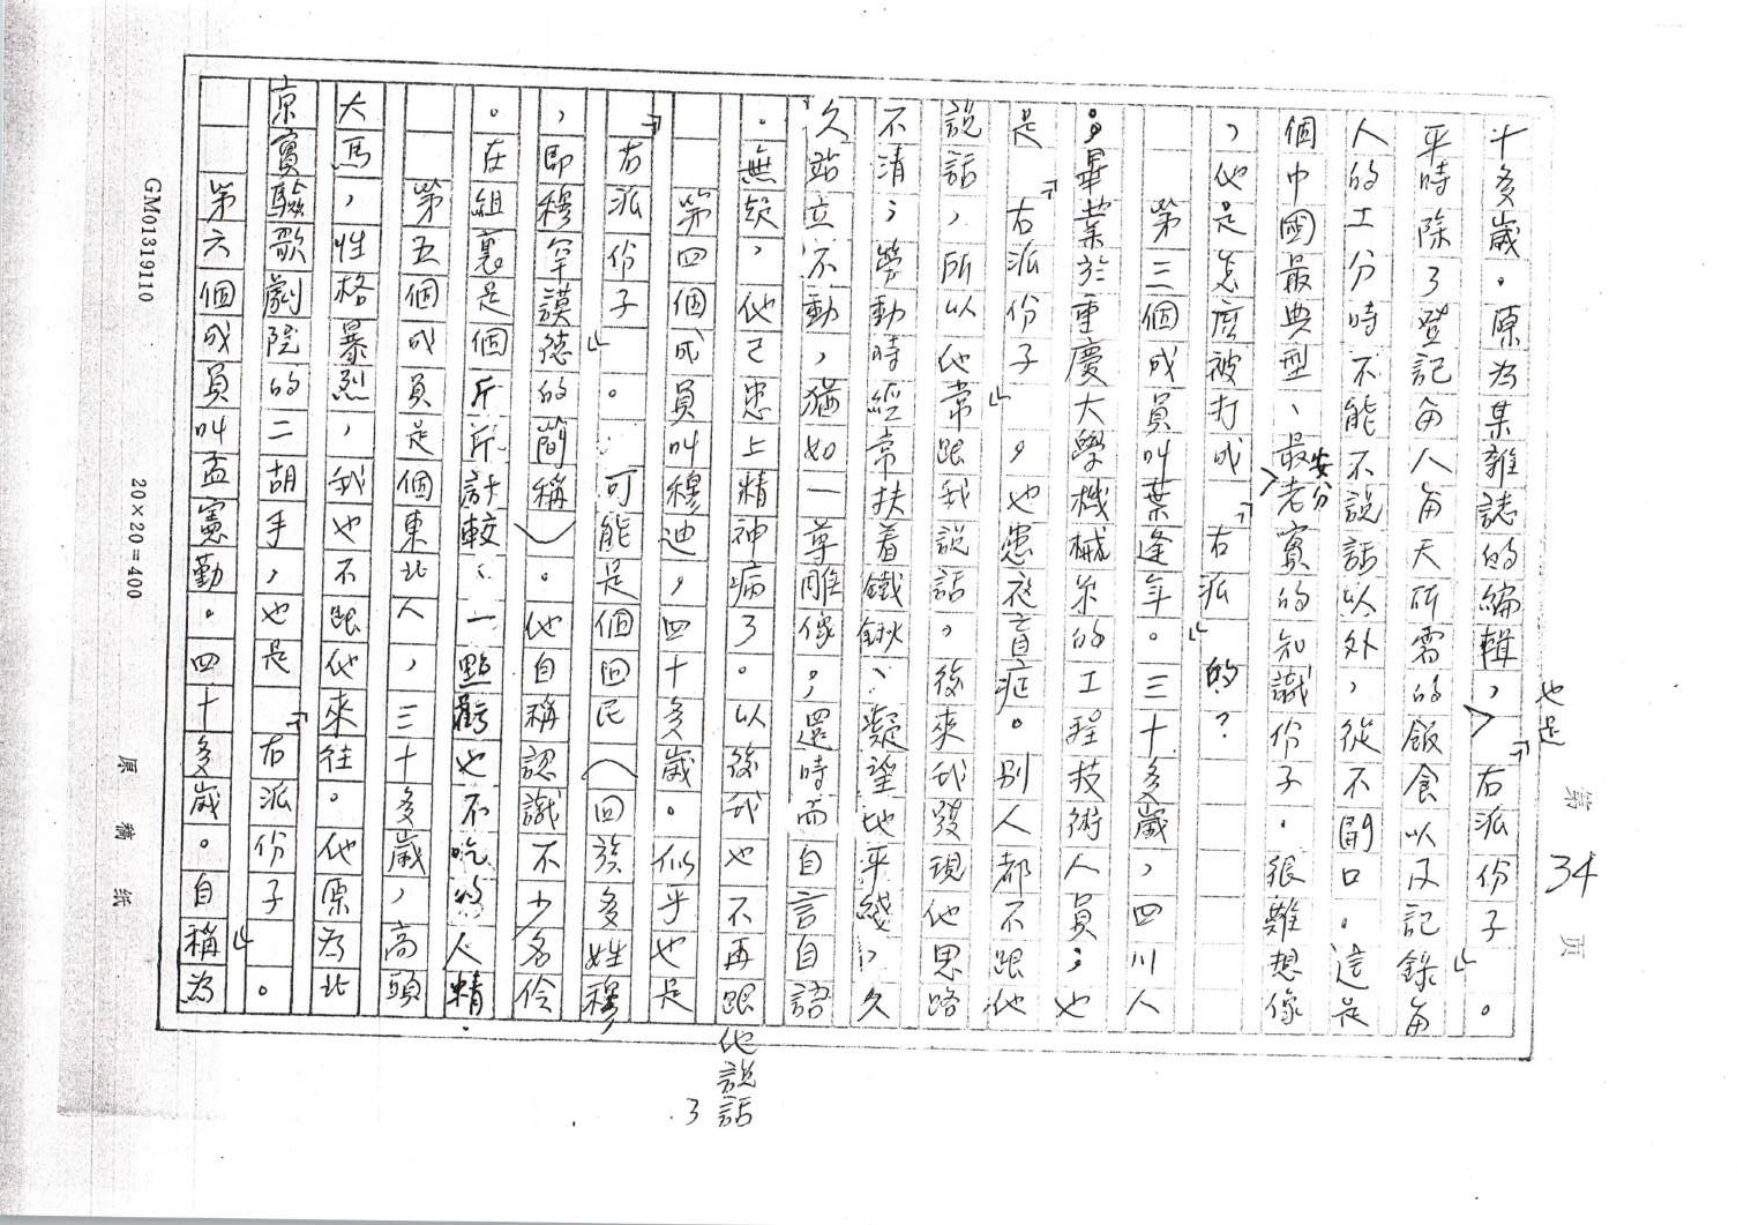 第 34 页
十多歲。原为某雜誌的編輯，也是「右派份子」。
平時除了登記每人每天所需的飯食以及記錄每
人的工分時不能不說話以外，從不開口。這是
個中國最典型、最安分老實的知識份子。很難想像
，他是怎麽被打成「右派」的？
第三個成員叫葉逢年。三十多歲，四川人
，畢業於重慶大學機械系的工程技術人員；也
是「右派份子」，也患夜盲症。別人都不跟他
說話，所以他常跟我說話。後來我發現他思路
不清；勞動時經常扶着鐵鍬、凝望地平綫，久
久站立不動，猶如一尊雕像；還時而自言自語
。無疑，他已患上精神病了。以後我也不再跟他說話
了
第四個成員叫穆迪，四十多歲。似乎也是
「右派份子」。可能是個回民（回族多姓穆
，即穆罕謨德的簡稱）。他自稱認識不少名伶
。在組裏是個斤斤計較、一點虧也不吃的人精
第五個成員是個東北人，三十多歲，高頭
大馬，性格暴烈，我也不跟他來往。他原為北
京實驗歌劇院的二胡手，也是「右派份子」。
第六個成員叫孟憲勤。四十多歲。自稱為
GM01319110
20×20=400
原稿紙